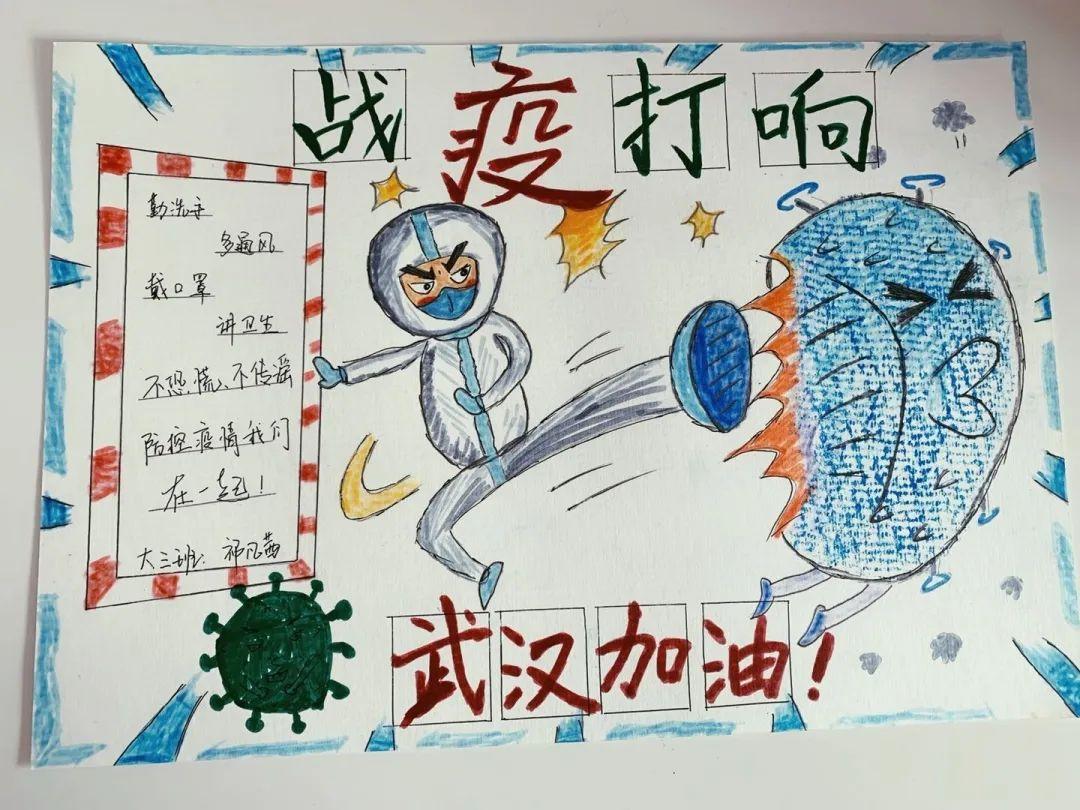 战疫打响
勤洗手
多通风
戴口罩
讲卫生
不恐慌、不传谣
防控疫情我们
在一起！
大三班：祁凡茜
武汉加油！